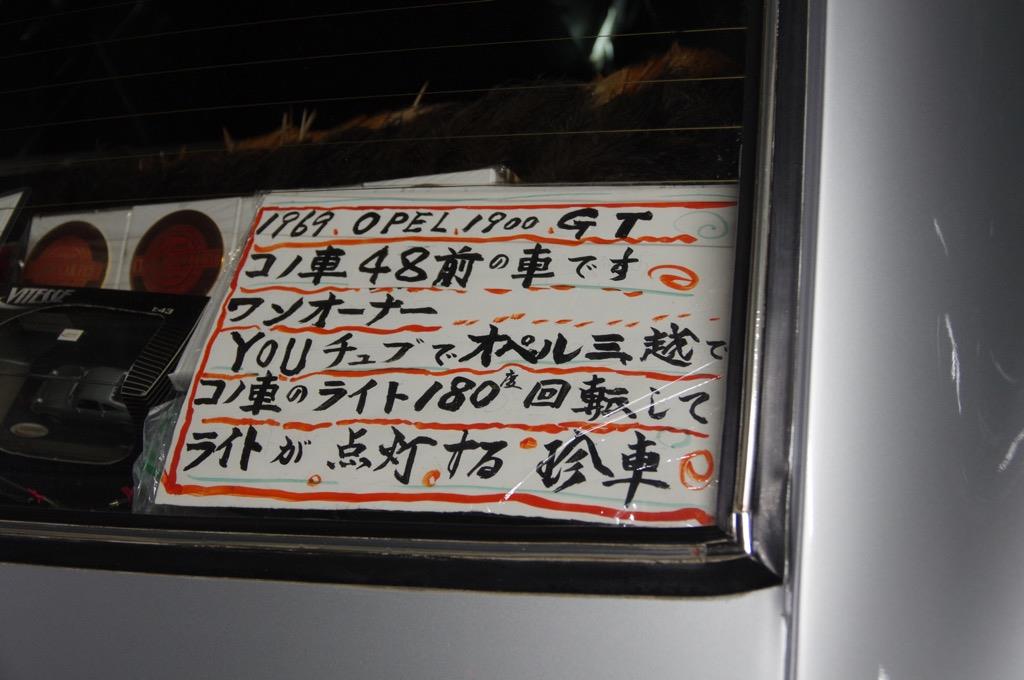 1969. OPEL. 1900. GT
コノ車48前の車です
ワンオーナー
YOUチュブでオペル三越で
コノ車のライト180度回転して
ライトが点灯する珍車
VITESSE
1:43